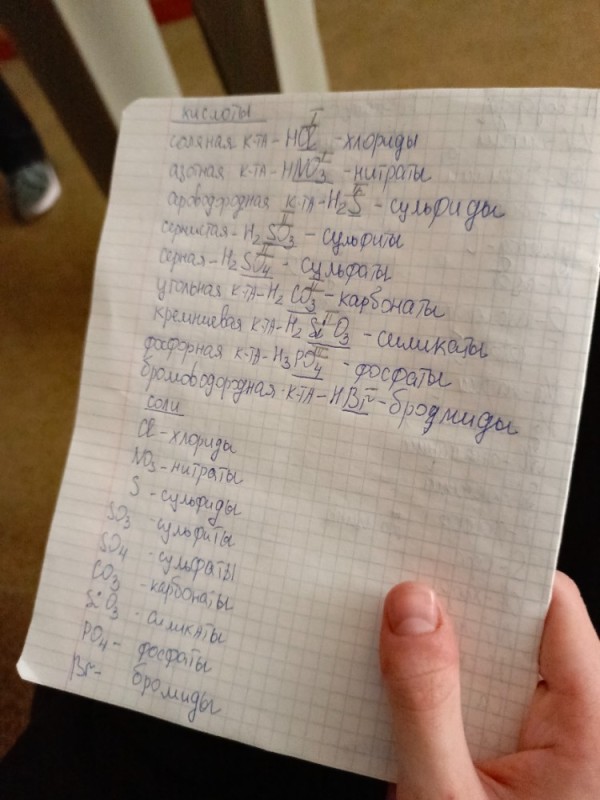 кислоты
соляная к-та - HCl I - хлориды
азотная к-та - HNO3 I - нитраты
сероводородная к-та - H2S II - сульфиды
сернистая - H2SO3 II - сульфиты
серная - H2SO4 II - сульфаты
угольная к-та - H2CO3 II - карбонаты
кремниевая к-та - H2SiO3 II - силикаты
фосфорная к-та - H3PO4 - фосфаты
бромоводородная - к-та - HBr I - бродмиды
соли
Cl - хлориды
NO3 - нитраты
S - сульфиды
SO3 - сульфиты
SO4 - сульфаты
CO3 - карбонаты
SiO3 - силикаты
PO4 - фосфаты
Br - бромиды